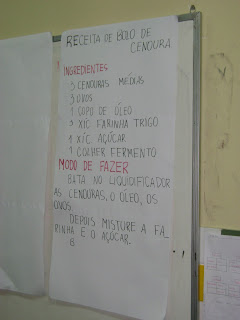 RECEITA DE BOLO DE
CENOURA
INGREDIENTES
3 CENOURAS MÉDIAS
3 OVOS
1 COPO DE ÓLEO
3 XÍC FARINHA TRIGO
2 XÍC AÇÚCAR
1 COLHER FERMENTO
MODO DE FAZER
BATA NO LIQUIDIFICADOR
AS CENOURAS, O ÓLEO, OS
OVOS.
DEPOIS MISTURE A FA_
RINHA E O AÇÚCAR.